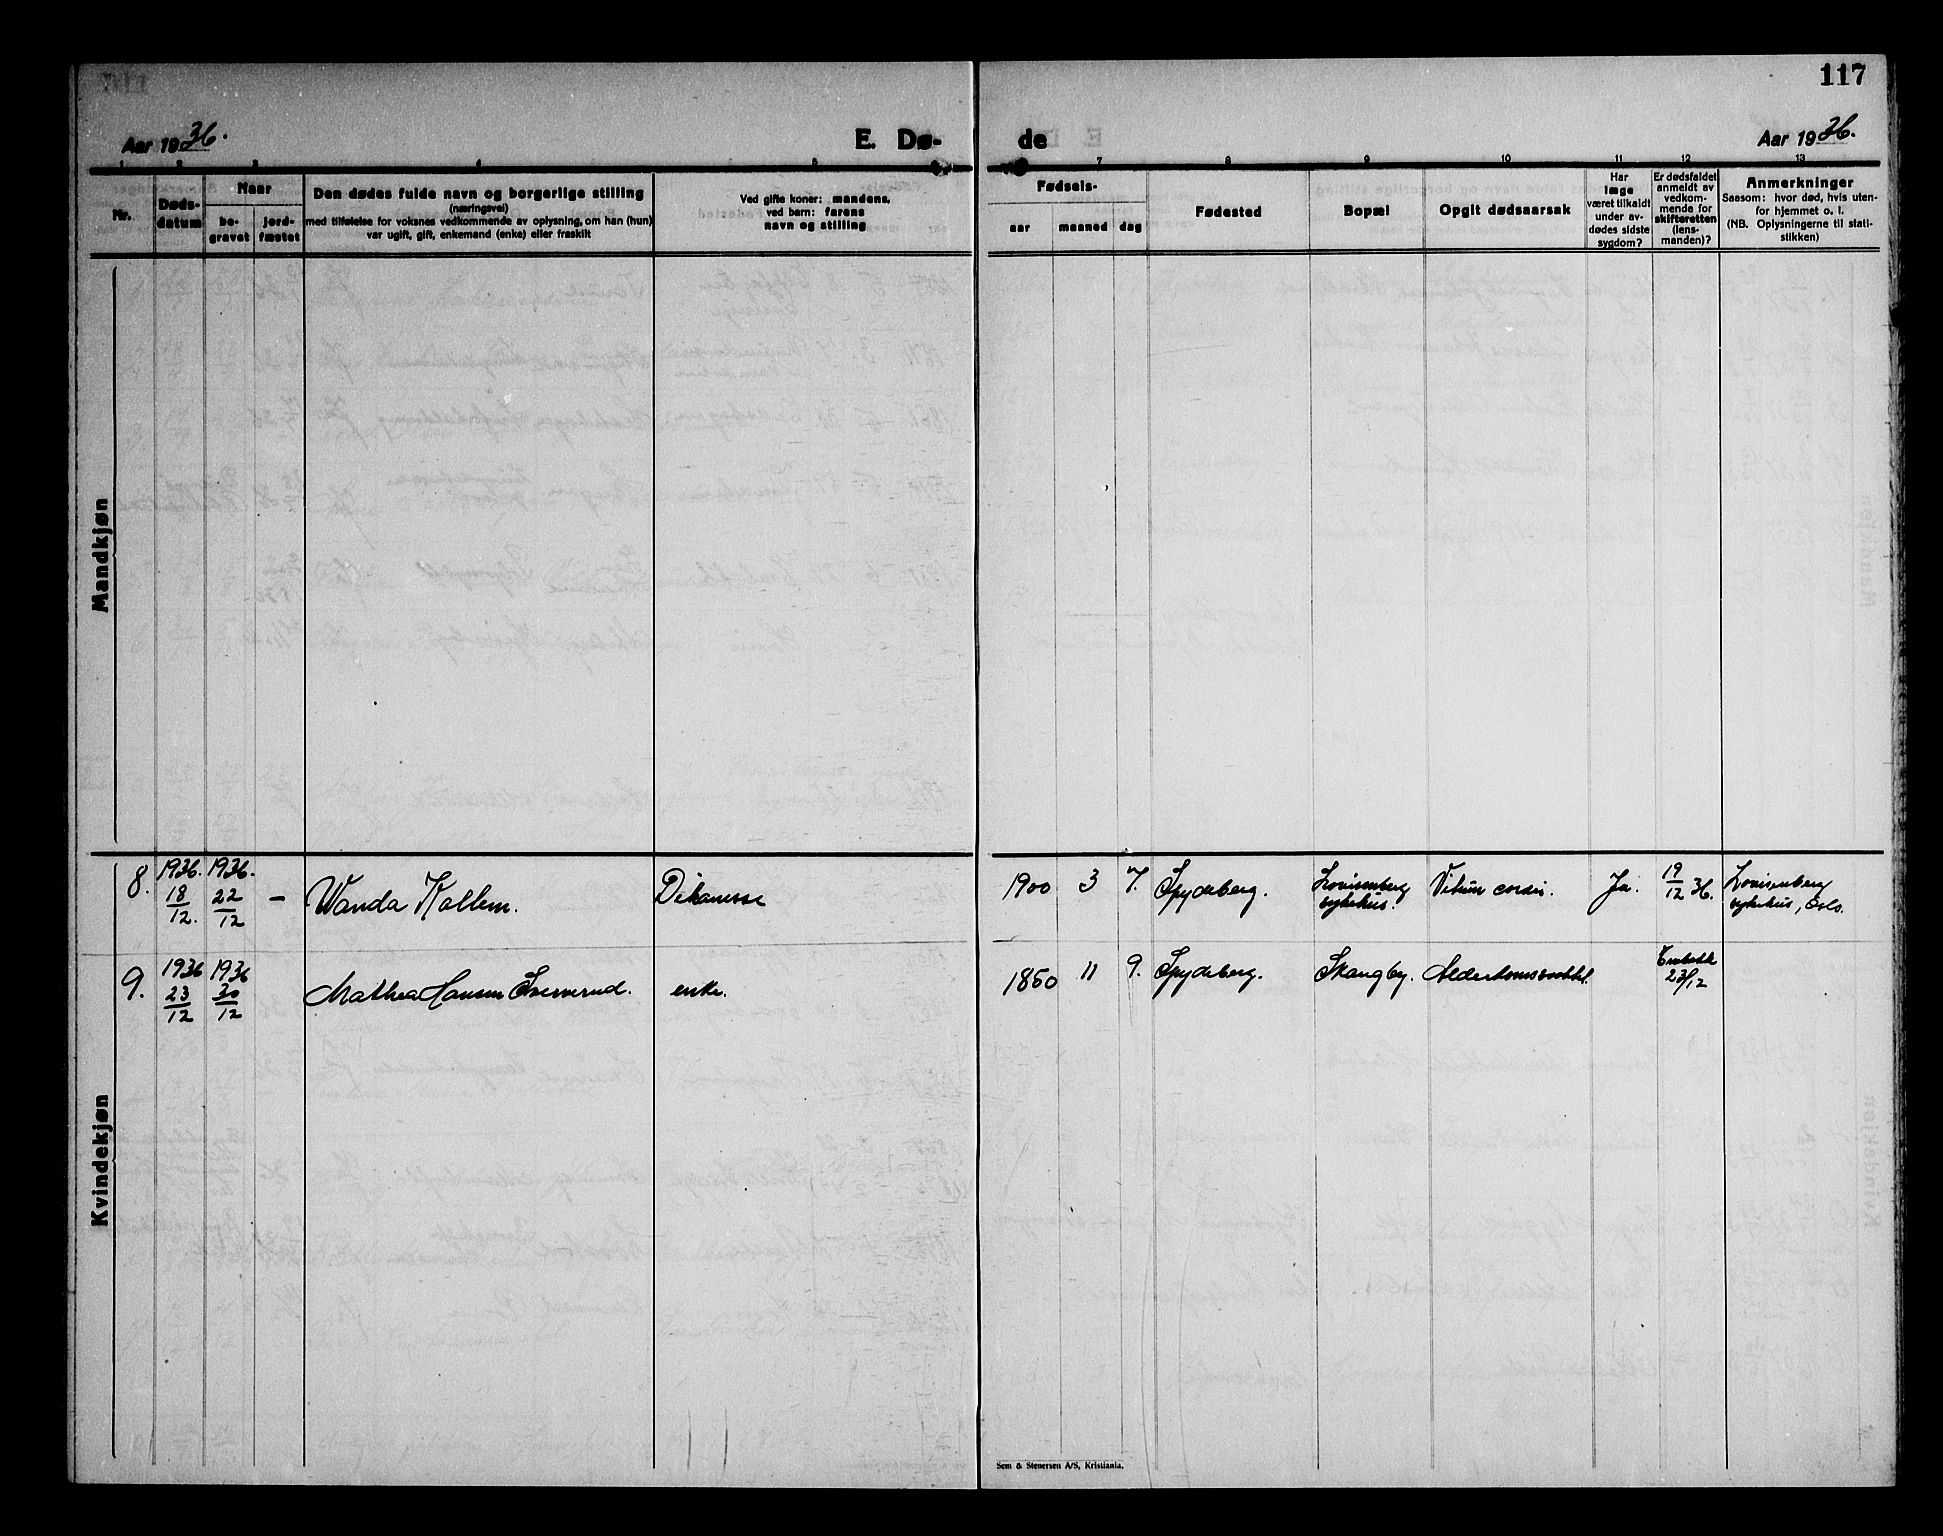 117
Aar 1936.
E. Dø-
de
Aar 1936.
1 2 3 4 5
7 8 9 10 11 12 13
Nr.
Døds-
datum
Naar
be-
gravet
jord-
fæstet
Den dødes fulde navn og borgerlige stilling
(næringsvei)
med tilføielse for voksnes vedkommende av oplysning, om han (hun)
var ugift, gift, enkemand (enke) eller fraskilt
Ved gifte koner: mandens,
ved barn: farens
navn og stilling
Fødsels-
aar
maaned
dag
Fødested
Bopæl
Opgit dødsaarsak
Har
læge
været tilkaldt
under av-
dødes sidste
sygdom?
Er dødsfaldet
anmeldt av
vedkom-
mende for
skifteretten
(lens-
manden)?
Anmerkninger
Saasom: hvor død, hvis uten-
for hjemmet o. l.
(NB. Oplysningerne til stati-
stikken)
Mandkjøn
Kvindekjøn
8. 1936. 18/12. 1936. 22/12 - Wanda Kallem. 1900 3 7. Spydeberg. Lovisenberg Vitium cordis. Ja. 19/12 36. Lovisenberg
sykehus. sykehus, Oslo.
9. 1936 23/12 1936 30/12 Mathea Hansen enke. 1850 11 9. Spydeberg. Skangby. 23/12
Sem & Stenersen A/S, Kristiania.